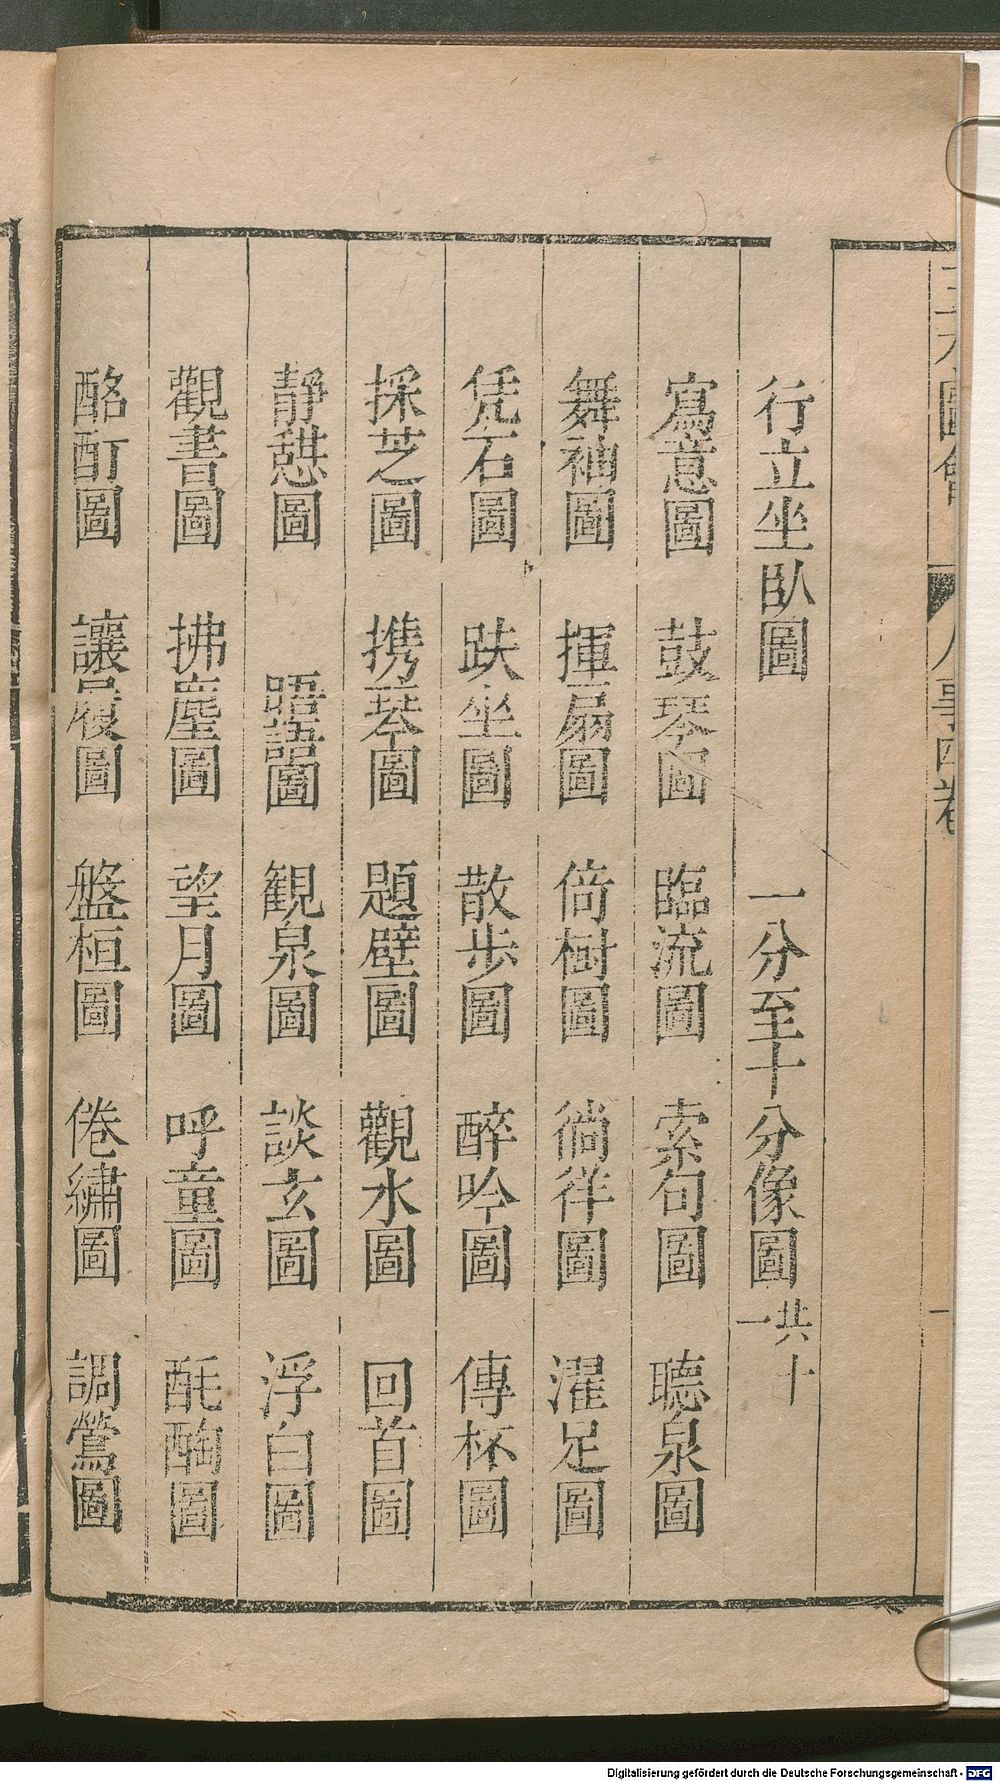 三才圖會 人事四卷 一
行立坐臥圖 一分至十分像圖 共十一
寫意圖 鼓琴圖 臨流圖 索句圖 聽泉圖
舞袖圖 揮扇圖 倚樹圖 徜徉圖 濯足圖
凭石圖 趺坐圖 散步圖 醉吟圖 傳杯圖
採芝圖 携琴圖 題壁圖 觀水圖 回首圖
靜憇圖 晤語圖 観泉圖 談玄圖 浮白圖
觀書圖 拂塵圖 望月圖 呼童圖 酕醄圖
酩酊圖 讓履圖 盤桓圖 倦繡圖 調鶯圖
Digitalisierung gefördert durch die Deutsche Forschungsgemeinschaft - DFG